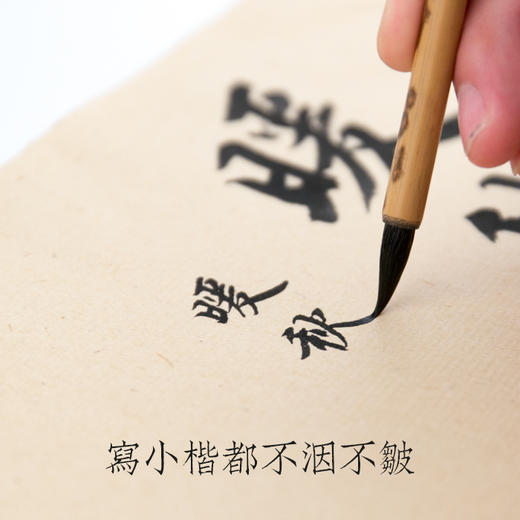 暖
暖秋
寫小楷都不洇不皺